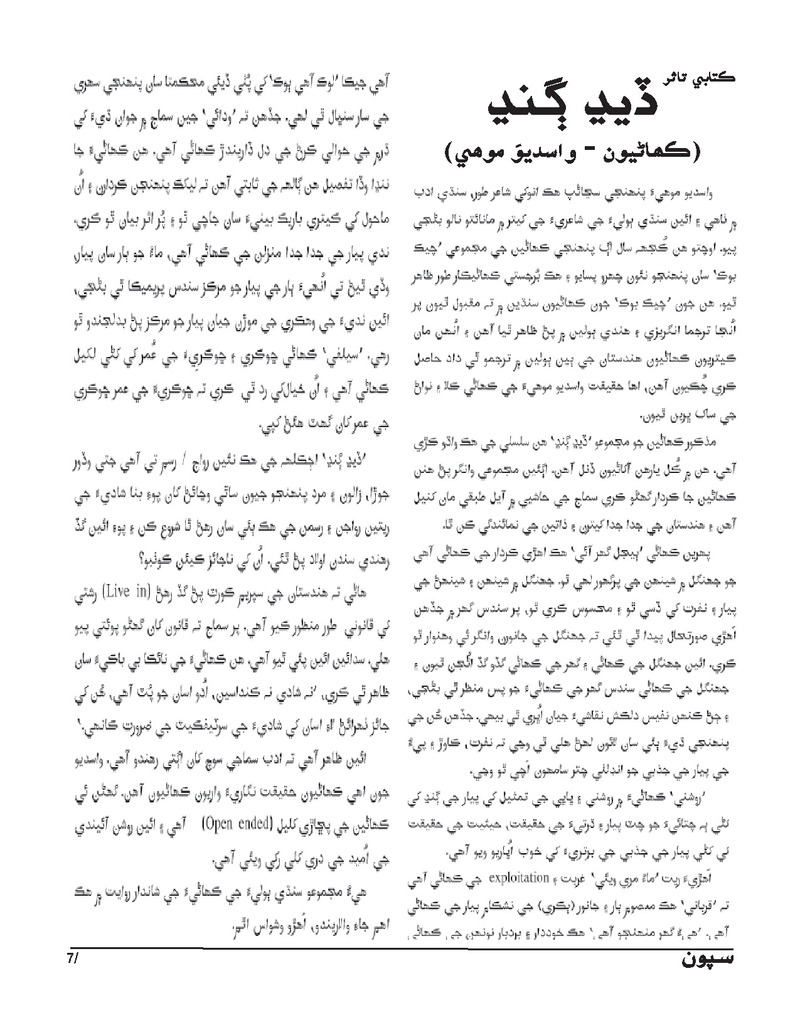 ڪتابي تاثر
ڏيڍ ڳنڍ
(ڪهاڻيون - واسديوَ موهي)
واسديو موهيءَ پنهنجي سڃاڻپ هڪ انوکي شاعر طور، سنڌي ادب
۾ ٺاهي ۽ ائين سنڌي ٻوليءَ جي شاعريءَ جي کيتر ۾ مانائتو نالو بڻجي
پيو. اوچتو هن ڪُجهہ سال اڳ پنهنجي ڪهاڻين جي مجموعي 'چيڪ
بوڪ' سان پنهنجو نئون چهرو پسايو ۽ هڪ بُرجستي ڪهاڻيڪار طور ظاهر
ٿيو. هن جون 'چيڪ بوڪ' جون ڪهاڻيون سنڌين ۾ تہ مقبول ٿيون پر
اُنجا ترجما انگريزي ۽ هندي ٻولين ۾ پڻ ظاهر ٿيا آهن ۽ اُنهن مان
ڪيتريون ڪهاڻيون هندستان جي ٻين ٻولين ۾ ترجمو ٿي داد حاصل
ڪري چُڪيون آهن. اها حقيقت واسديو موهيءَ جي ڪهاڻي ڪلا ۽ نواڻ
جي ساک ڀرين ٿيون.
مذڪور ڪهاڻين جو مجموعو 'ڏيڍ ڳنڍ' هن سلسلي جي هڪ واڌو ڪڙي
آهي. هن ۾ ڪُل يارهن آکاڻيون ڏنل آهن. اڳئين مجموعي وانگر پڻ هنن
ڪهاڻين جا ڪردار گهڻو ڪري سماج جي حاشيي ۾ آيل طبقي مان کنيل
آهن ۽ هندستان جي جدا جدا کيترن ۽ ذاتين جي نمائندگي ڪن ٿا.
پهرين ڪهاڻي 'ٻيجل گهر آئي' هڪ اهڙي ڪردار جي ڪهاڻي آهي
جو جهنگل ۾ شينهن جي پرگهور لهي ٿو. جهنگل ۾ شينهن ۽ شينهڻ جي
پيار ۽ نفرت کي ڏسي ٿو ۽ محسوس ڪري ٿو، پر سندس گهر ۾ جڏهن
اَهڙي صورتحال پيدا ٿي ٿئي تہ جهنگل جي جانورن وانگر ئي وهنوار ٿو
ڪري. ائين جهنگل جي ڪهاڻي ۽ گهر جي ڪهاڻي گڏوگڏ اُڻجن ٿيون ۽
جهنگل جي ڪهاڻي سندس گهر جي ڪهاڻيءَ جو پس منظر ٿي بڻجي،
۽ ڄڻ ڪنهن نفيس دلڪش نقاشيءَ جيان اُڀري ٿي بيهي. جڏهن هُن جي
پنهنجي ڌيءَ ٻئي سان لائون لهڻ هلي ٿي وڃي تہ نفرت، ڪاوڙ ۽ پيءُ
جي پيار جي جذبي جو انڊلٺي چتر سامهون اَچي ٿو وڃي.
'روشني' ڪهاڻيءَ ۾ روشني ۽ ڀاڀي جي تمثيل کي پيار جي ڳنڍ کي
کڻي بہ چتائيءَ جو چٽ پيار ۽ ڌرتيءَ جي حقيقت، حيثيت جي حقيقت
تي کڻي پيار جي جذبي جي برتريءَ کي خوب اُڀاريو ويو آهي.
اَهڙيءَ ريت 'ماءُ مري ويئي' غربت ۽ exploitation جي ڪهاڻي آهي
تہ 'قرباني' هڪ معصوم ٻار ۽ جانور (ٻڪري) جي نشڪام پيار جي ڪهاڻي
آهي. 'هيءُ گهر منهنجو آهي' هڪ خوددار ۽ بردبار نونهن جي ڪهاڻي
آهي جيڪا 'لوڪ آهي ٻوڪ' کي پُٺي ڏيئي محڪمتا سان پنهنجي سهري
جي سار سنڀال ٿي لهي. جڏهن تہ 'وداڻي' جين سماج ۾ جوان ڌيءَ کي
ڌرم جي حوالي ڪرڻ جي دل ڏاريندڙ ڪهاڻي آهي. هن ڪهاڻيءَ جا
ننڍا وڏا تفصيل هن ڳالهہ جي ثابتي آهن تہ ليکڪ پنهنجن ڪردارن ۽ اُن
ماحول کي ڪيتري باريڪ بينيءَ سان جاچي ٿو ۽ پُر اثر بيان ٿو ڪري.
ندي پيار جي جدا جدا منزلن جي ڪهاڻي آهي، ماءُ جو ٻار سان پيار،
وڏي ٿيڻ تي اُنهيءَ ٻار جي پيار جو مرڪز سندس پريميڪا ٿي بڻجي،
ائين نديءَ جي وهڪري جي موڙن جيان پيار جو مرڪز پڻ بدلجندو ٿو
رهي. 'سيلفي' ڪهاڻي ڇوڪري ۽ ڇوڪريءَ جي عُمر کي کڻي لکيل
ڪهاڻي آهي ۽ اُن خيال کي رد ٿي ڪري تہ ڇوڪريءَ جي عمر ڇوڪري
جي عمر کان گهٽ هئڻ کپي.
'ڏيڍ ڳنڍ' اڄڪلهہ جي هڪ نئين رواج / رسم تي آهي جتي وڏور
جوڙا، زالون ۽ مرد پنهنجو جيون ساٿي وڃائڻ کان پوءِ بنا شاديءَ جي
ريتين رواجن ۽ رسمن جي هڪ ٻئي سان رهڻ ٿا شروع ڪن ۽ پوءِ ائين گڏ
رهندي سندن اولاد پڻ ٿئي. اُن کي ناجائز ڪيئن ڪوٺبو؟
هاڻي تہ هندستان جي سپريم ڪورٽ پڻ گڏ رهڻ (Live in) رشتي
کي قانوني طور منظور ڪيو آهي. پر سماج تہ قانون کان گهڻو پوئتي پيو
هلي، سدائين ائين پئي ٿيو آهي. هن ڪهاڻيءَ جي نائڪا بي باڪيءَ سان
ظاهر ٿي ڪري، 'نہ شادي نہ ڪنداسين، اُڌو اسان جو پُٽ آهي، هُن کي
جائز ٺهرائڻ لاءِ اسان کي شاديءَ جي سرٽيفڪيٽ جي ضرورت ڪانهي.'
ائين ظاهر آهي تہ ادب سماجي سوچ کان اڳتي رهندو آهي. واسديو
جون اهي ڪهاڻيون حقيقت نگاريءَ واريون ڪهاڻيون آهن. گهڻن ئي
ڪهاڻين جي پڇاڙي کليل (Open ended) آهي ۽ ائين روشن آئيندي
جي اُميد جي دري کلي رکي ويئي آهي.
هيءُ مجموعو سنڌي ٻوليءَ جي ڪهاڻيءَ جي شاندار روايت ۾ هڪ
اهم جاءِ والاريندو، اَهڙو وشواس اٿم.
سپون
7/